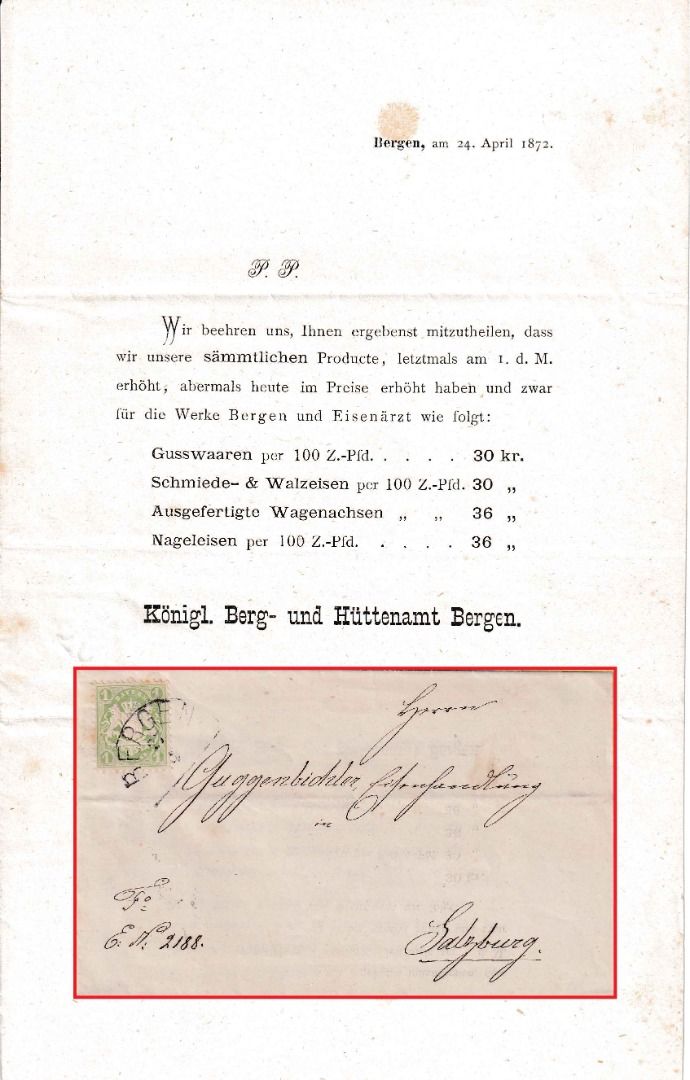 Bergen, am 24. April 1872.
P. P.
Wir beehren uns, Ihnen ergebenst mitzutheilen, dass
wir unsere sämmtlichen Producte, letztmals am 1. d. M.
erhöht, abermals heute im Preise erhöht haben und zwar
für die Werke Bergen und Eisenärzt wie folgt:
Gusswaaren per 100 Z.-Pfd. . . . . 30 kr.
Schmiede- & Walzeisen per 100 Z.-Pfd. 30 „
Ausgefertigte Wagenachsen „ „ 36 „
Nageleisen per 100 Z.-Pfd. . . . . 36 „
Königl. Berg- und Hüttenamt Bergen.
1 1
1 1
BERGEN
Herrn
Guggenbichler, Eisenhandlung
in
Fo
E. N. 2188.
Salzburg.